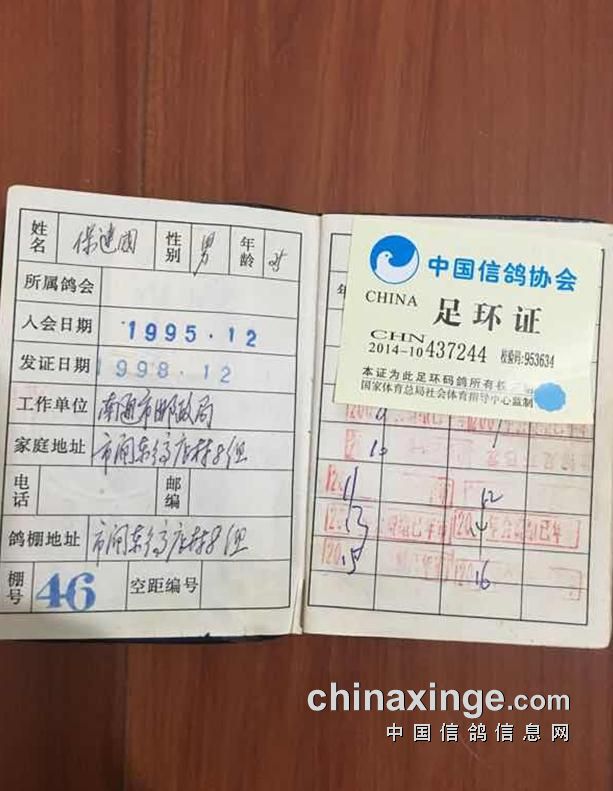 姓名 保建国 性别 男 年龄 25
所属鸽会
入会日期 1995.12
发证日期 1998.12
工作单位 南通市邮政局
家庭地址
电话 邮编
鸽棚地址
棚号 46 空距编号
中国信鸽协会
CHINA 足环证
CHN
2014-10 437244 校验码:953634
本证为此足环码鸽所有权
国家体育总局社会体育指导中心监制
10
11 12
13 14
15 16
chinaxinge.com
中国信鸽信息网